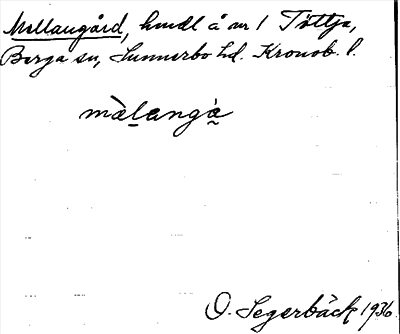 Mellangård, hmdl å nr 1 Töttja,
Berga sn, Sunnerbo hd. Kronob. l.
mälangå
O. Segerbäck 1936.